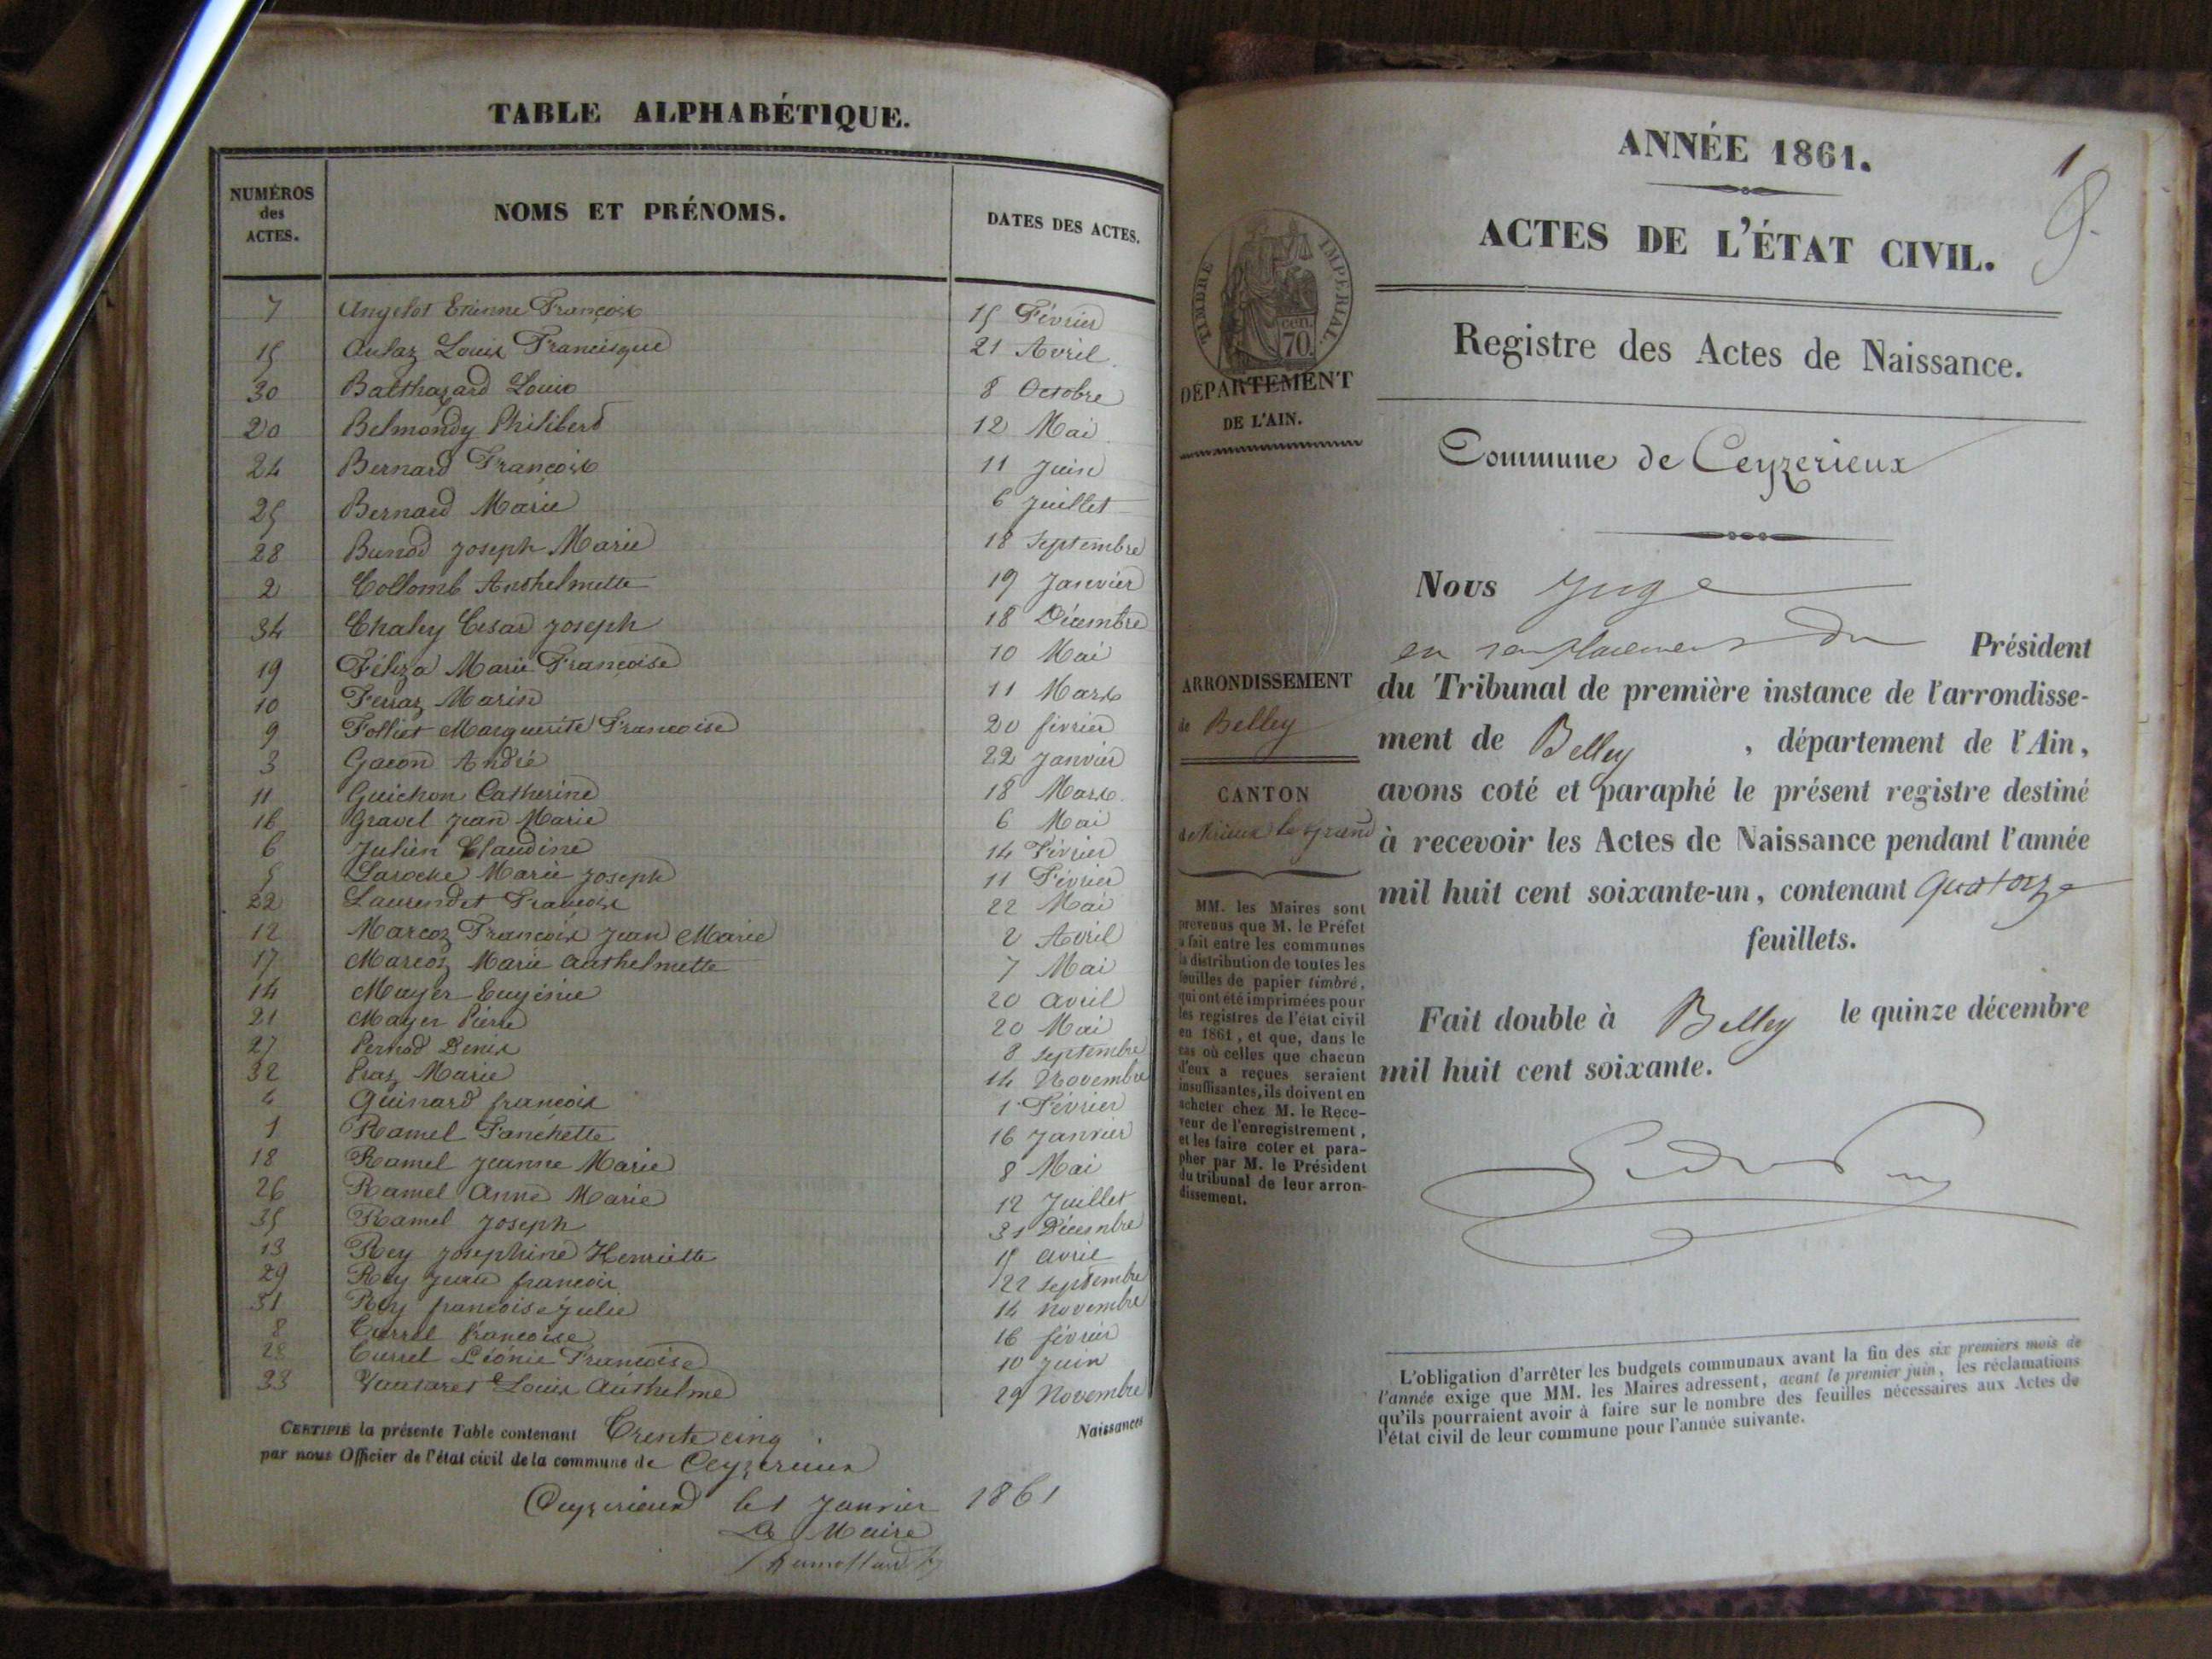 TABLE ALPHABÉTIQUE.
NUMÉROS
des
ACTES.
NOMS ET PRÉNOMS.
DATES DES ACTES.
7 Angelot Etienne François 15 Février
15 Louis Francisque 21 Avril
30 Balthazard Louis 8 Octobre
20 Belmondy Philibert 12 Mai
24 Bernard François 11 Juin
25 Bernard Marie 6 Juillet
28 Joseph Marie 18 Septembre
2 Collomb Anthelmette 19 Janvier
34 Chaley Cesar Joseph 18 Décembre
19 Féliza Marie Françoise 10 Mai
10 Ferraz Marin 11 Mars
9 Folliet Marguerite Francoise 20 février
3 Gacon André 22 Janvier
11 Guichon Catherine 18 Mars
16 Gravel Jean Marie 6 Mai
6 Julien Claudine 14 Février
5 Laroche Marie Joseph 11 Février
22 Laurendet François 22 Mai
12 Marcoz François Jean Marie 2 Avril
17 Marcoz Marie Anthelmette 7 Mai
14 Mayer Eugénie 20 Avril
21 Mayer Pierre 20 Mai
27 Pernod Denis 8 Septembre
32 Praz Marie 14 Novembre
4 Guinard françois 1 Février
1 Ramel Fanchette 16 Janvier
18 Ramel Jeanne Marie 8 Mai
26 Ramel Anne Marie 12 Juillet
35 Ramel Joseph 31 Décembre
13 Rey Josephine Henriette avril
29 Rey Jean francois 22 Septembre
31 Rey francoise Julie 14 novembre
8 Currel françoise 16 février
23 Currel Léonie Francoise 10 Juin
33 Vautaret Louis Anthelme 29 Novembre
CERTIFIÉ la présente Table contenant Trente cinq Naissances
par nous Officier de l'état civil de la commune de Ceyzerieux
Ceyzerieux le 1 Janvier 1861
Le Maire
1
ANNÉE 1861.
ACTES DE L'ÉTAT CIVIL.
TIMBRE IMPÉRIAL.
cen.
70
DÉPARTEMENT
DE L'AIN.
Registre des Actes de Naissance.
Commune de Ceyzerieux
Nous Juge
en remplacement du Président
ARRONDISSEMENT
de Belley
CANTON
de Virieux le grand
du Tribunal de première instance de l'arrondisse-
ment de Belley, département de l'Ain,
avons coté et paraphé le présent registre destiné
à recevoir les Actes de Naissance pendant l'année
mil huit cent soixante-un, contenant quatorze
feuillets.
Fait double à Belley le quinze décembre
mil huit cent soixante.
MM. les Maires sont
prévenus que M. le Préfet
a fait entre les communes
la distribution de toutes les
feuilles de papier timbré,
qui ont été imprimées pour
les registres de l'état civil
en 1861, et que, dans le
cas où celles que chacun
d'eux a reçues seraient
insuffisantes, ils doivent en
acheter chez M. le Rece-
veur de l'enregistrement,
et les faire coter et para-
pher par M. le Président
du tribunal de leur arron-
dissement.
L'obligation d'arrêter les budgets communaux avant la fin des six premiers mois de
l'année exige que MM. les Maires adressent, avant le premier juin, les réclamations
qu'ils pourraient avoir à faire sur le nombre des feuilles nécessaires aux Actes de
l'état civil de leur commune pour l'année suivante.